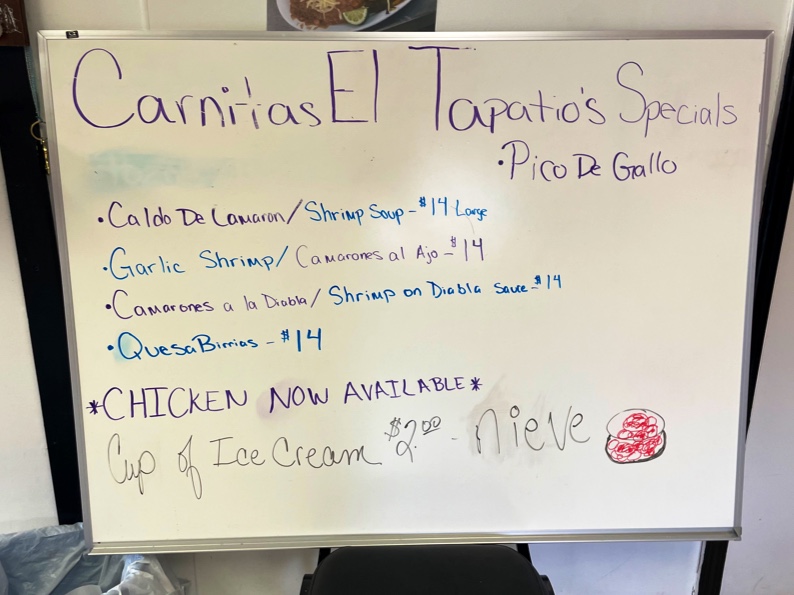 Carnitas El Tapatio's Specials
•Pico De Gallo
•Caldo De Camaron/Shrimp Soup-$14 Large
•Garlic Shrimp/Camarones al Ajo-$14
•Camarones a la Diabla/Shrimp on Diabla Sauce-$14
•QuesaBirrias-$14
*CHICKEN NOW AVAILABLE*
Cup of Ice Cream $2.00 - nieve